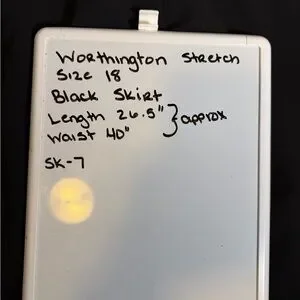 Worthington Stretch
Size 18
Black Skirt
Length 26.5" } approx
Waist 40"
SK-7